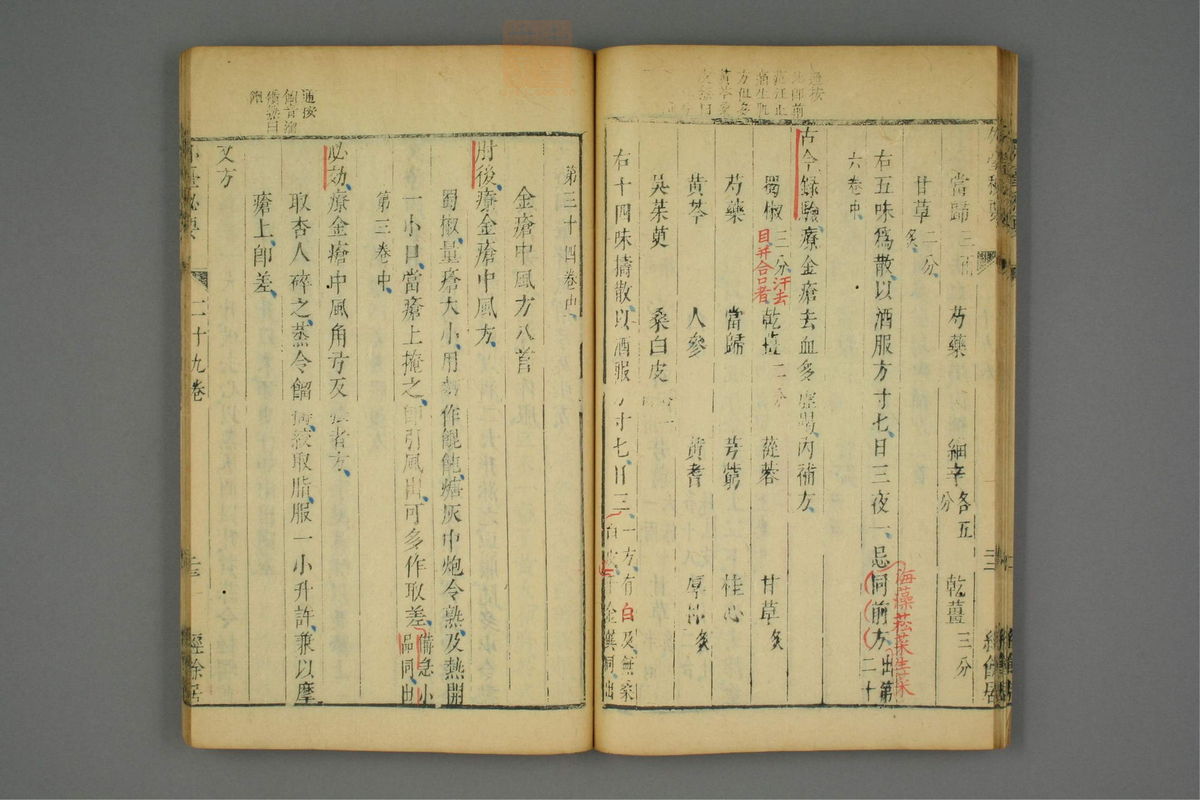 當歸三分 芍藥 細辛各五分 乾薑三分
甘草二分炙
右五味為散以酒服方寸七日三夜一忌同前方出第二十
海藻菘菜生菜
六卷中
古今録驗療金瘡去血多虛竭內補方
蜀椒三分汗去目并合口者 乾薑二分 蓯蓉 甘草炙
芍藥 當歸 芎藭 桂心
黃芩 人參 黃耆 厚朴炙
吳茱萸 桑白皮
右十四味擣散以酒服方寸七日三一方有白及無桑白皮千金翼同出
第三十四卷中
金瘡中風方八首
肘後療金瘡中風方
蜀椒量瘡大小用麪作餛飩煻灰中炮令熟及熱開
一小口當瘡上掩之即引風出可多作取差備急小品同出
第三卷中
必効療金瘡中風角弓反張者方
取杏人碎之蒸令餾絞取脂服一小升許兼以摩
瘡上即差
又方
通按
外臺祕要 二十九卷 三 經餘居